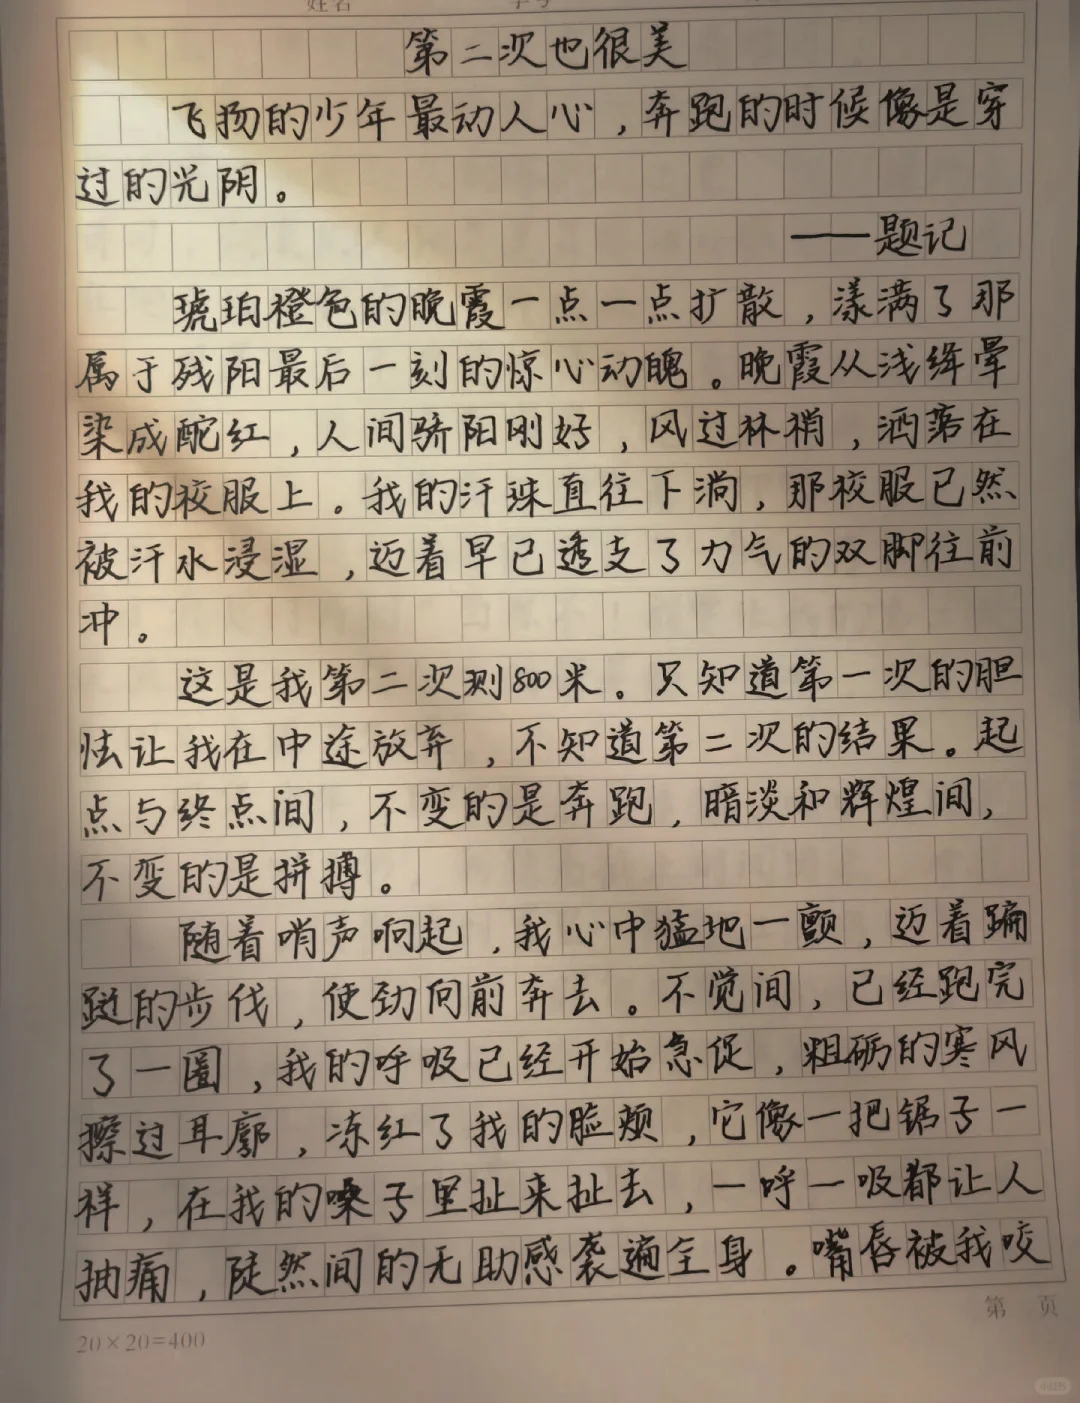 姓名
第二次也很美
飞扬的少年最动人心，奔跑的时候像是穿
过的光阴。
——题记
琥珀橙色的晚霞一点一点扩散，漾满了那
属于残阳最后一刻的惊心动魄。晚霞从浅绛晕
染成酡红，人间骄阳刚好，风过林梢，洒落在
我的校服上。我的汗珠直往下淌，那校服已然
被汗水浸湿，迈着早已透支了力气的双脚往前
冲。
这是我第二次测800米。只知道第一次的胆
怯让我在中途放弃，不知道第二次的结果。起
点与终点间，不变的是奔跑，暗淡和辉煌间，
不变的是拼搏。
随着哨声响起，我心中猛地一颤，迈着蹒
跚的步伐，使劲向前奔去。不觉间，已经跑完
了一圈，我的呼吸已经开始急促，粗砺的寒风
擦过耳廓，冻红了我的脸颊，它像一把锯子一
样，在我的嗓子里扯来扯去，一呼一吸都让人
抽痛，陡然间的无助感袭遍全身。嘴唇被我咬
第 页
20×20=400
小红书